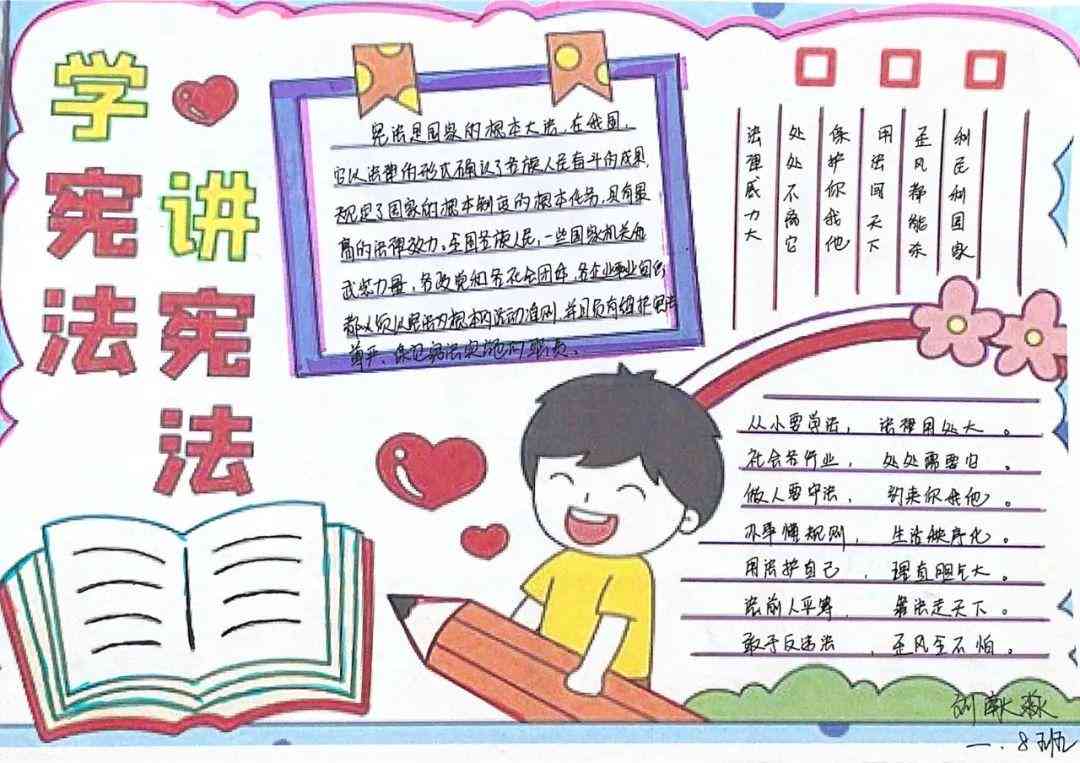 学宪法
讲宪法
宪法是国家的根本大法，在我国，
它以法律的形式确认了各族人民奋斗的成果，
规定了国家的根本制度的根本任务，具有最
高的法律效力。全国各族人民，一些国家机关和
武装力量，各政党和各社会团体，各企业事业
都必须以宪法为根本的活动准则，并且负有维护宪法
尊严、保证宪法实施的职责。
法理威力大
处处不离它
保护你我他
用法闯天下
歪风都能杀
利民利国家
从小要学法，法理用处大。
社会各行业，处处需要它。
做人要守法，约束你我他。
办事懂规则，生活秩序化。
用法护自己，理直胆气大。
法前人平等，法走天下。
敢于反违法，歪风全不怕。
刘淼
一．8班